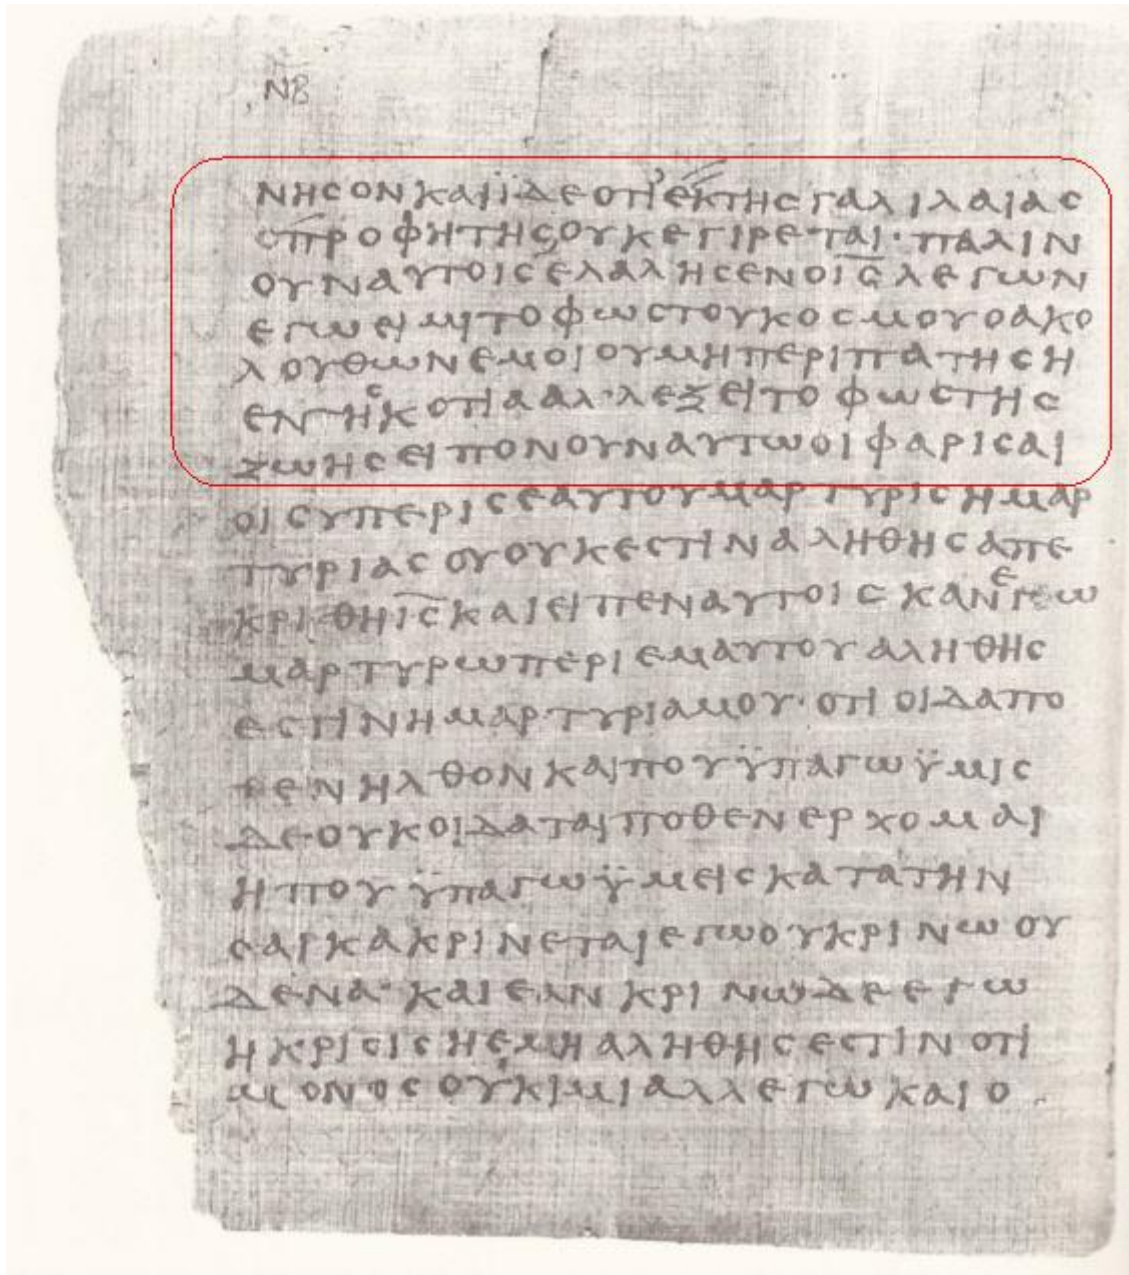 ΝΒ
ΝΗCΟΝΚΑΙΪΔΕΟΤΙ ΕΚΤΗCΓΑΛΙΛΑΙΑC
ΟΠΡΟΦΗΤΗCΟΥΚΕΓΙΡΕΤΑΙ· ΠΑΛΙΝ
ΟΥΝΑΥΤΟΙCΕΛΑΛΗCΕΝΟΙ̅C̅ΛΕΓΩΝ
ΕΓΩΕΙΜΙΤΟΦΩCΤΟΥΚΟCΜΟΥΟΑΚΟ
ΛΟΥΘΩΝΕΜΟΙΟΥΜΗΠΕΡΙΠΑΤΗCΗ
ΕΝΤΗCΚΟΤΙΑΑΛ·ΛΕΞΕΙΤΟΦΩCΤΗC
ΖΩΗCΕΙΠΟΝΟΥΝΑΥΤΩΟΙΦΑΡΙCΑΙ
ΟΙCΥΠΕΡΙCΕΑΥΤΟΥΜΑΡΤΥΡΙCΗΜΑΡ
ΤΥΡΙΑCΟΥΟΥΚΕCΤΙΝΑΛΗΘΗCΑΠΕ
ΚΡΙΘΗΙ̅C̅ΚΑΙΕΙΠΕΝΑΥΤΟΙCΚΑΝΕΓΩ
ΜΑΡΤΥΡΩΠΕΡΙΕΜΑΥΤΟΥΑΛΗΘΗC
ΕCΤΙΝΗΜΑΡΤΥΡΙΑΜΟΥ·ΟΤΙΟΙΔΑΠΟ
ΘΕΝΗΛΘΟΝΚΑΙΠΟΥΫΠΑΓΩΫΜΙC
ΔΕΟΥΚΟΙΔΑΤΑΙΠΟΘΕΝΕΡΧΟΜΑΙ
ΗΠΟΥΫΠΑΓΩΫΜΕΙCΚΑΤΑΤΗΝ
CΑΡΚΑΚΡΙΝΕΤΑΙΕΓΩΟΥΚΡΙΝΩΟΥ
ΔΕΝΑ·ΚΑΙΕΑΝΚΡΙΝΩΔΕΕΓΩ
ΗΚΡΙCΙCΗΕΜΗΑΛΗΘΗCΕCΤΙΝΟΤΙ
ΜΟΝΟCΟΥΚΙΜΙΑΛΛΕΓΩΚΑΙΟ